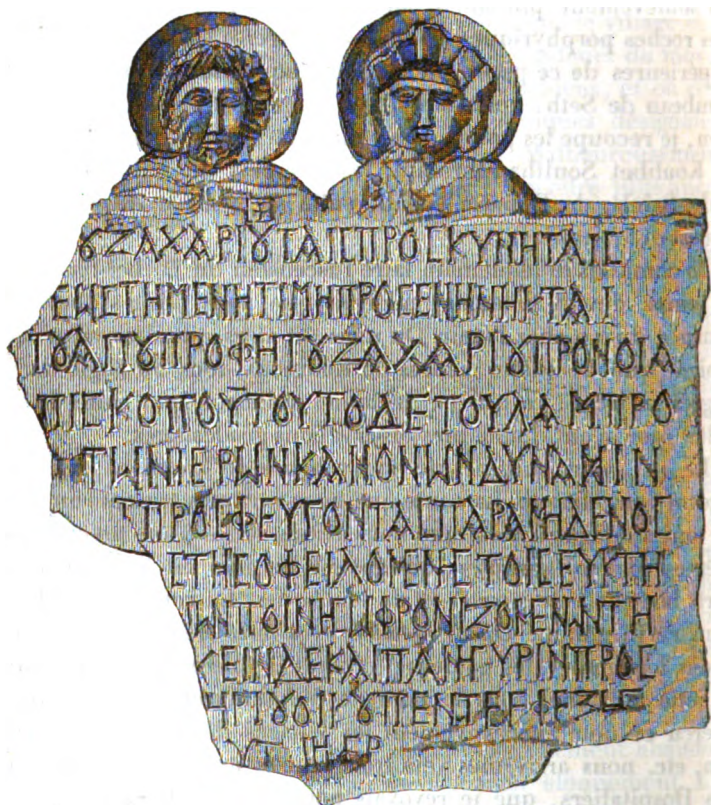 ȢΖΑΧΑΡΙȢΤΑΙϹΠΡΟϹΚΥΝΗΤΑΙϹ
ΕѠϹΤΗΜΕΝΗΤΙΜΗΠΡΟϹΕΝΗΝΗΚΤΑΙ
ΤȢΑΓΙȢΠΡΟΦΗΤȢΖΑΧΑΡΙȢΠΡΟΝΟΙΑ
ΠΙϹΚΟΠΟΥΤΟΥΤΟΔΕΤΟΥΛΑΜΠΡΟ
ΤѠΝΙΕΡѠΝΚΑΝΟΝѠΝΔΥΝΑΜΙΝ
ΠΡΟϹΦΕΥΓΟΝΤΑϹΠΑΡΑΜΗΔΕΝΟϹ
ϹΤΗϹΟΦΕΙΛΟΜΕΝΗϹΤΟΙϹΕΥΚΤΗ
ѠΝΠΟΙΝΗϹѠΦΡΟΝΙΖΟΜΕΝѠΝΤΗ
ΚΕΙΝΔΕΚΑΙΠΑΝΗΓΥΡΙΝΠΡΟϹ
ΗΡΙȢΟΙΚȢΠΕΝΤΕΕΦΕΞΗϹ